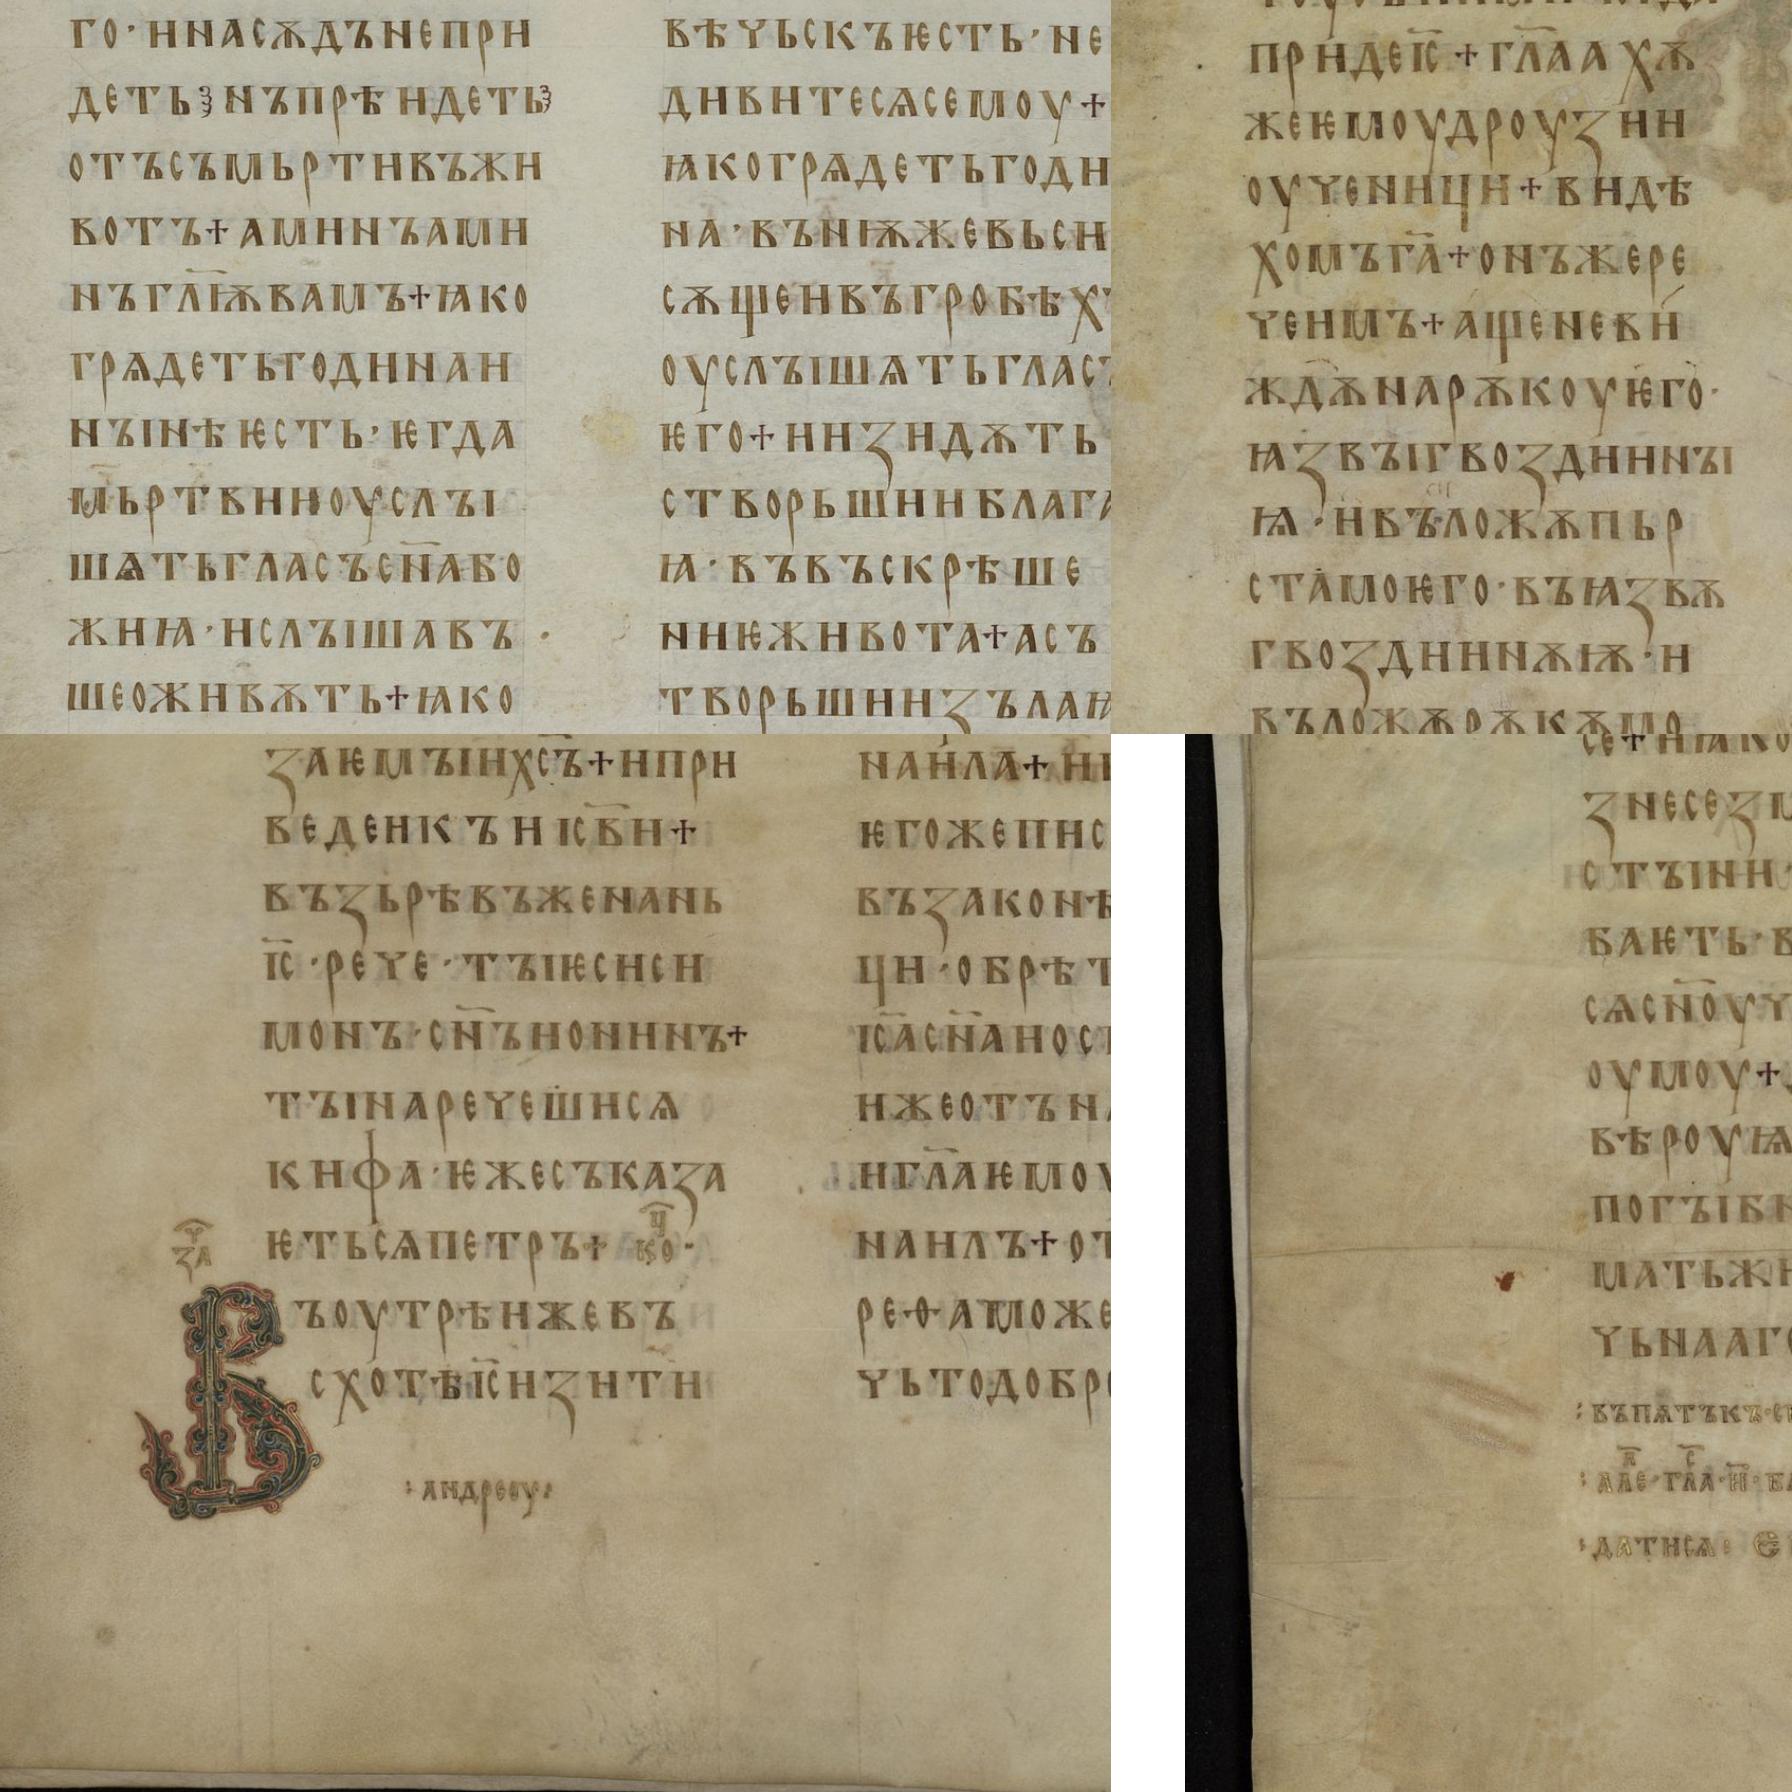 го· и на сѫдъ не при
деть ꙁ нъ прѣидеть ꙁ
отъ съмьрти въ жи
вотъ + аминъ ами
нъ гл҃ѭ вамъ + ꙗко
грѧдеть година и
нꙑнѣ ѥсть · ѥгда
мьртвии ѹслꙑ
шѧть гласъ сн҃а бо
жиꙗ · и слꙑшавъ
ше оживѫть + ꙗко
вѣчьскъ ѥсть · не
дивите сѧ семоу +
ꙗко грѧдеть годи
на · въ нѭже вьси
сѫщеи въ гробѣхъ
ѹслꙑшѧть гласъ
ѥго + и изидѫть
створьшии блага
ꙗ · въ въскрѣше
ниѥ живота + а съ
творьшии зълаꙗ
приде іс҃ + гл҃аахѫ
же ѥмоу дроузии
оученици + видѣ
хомъ га҃ + онъ же ре
че имъ + аще не ви
ждѫ на рѫкоу ѥго·
ꙗзвꙑ гвоздинꙑ
ꙗ · и въложѫ пьр
ста моѥго · въ ꙗзвѫ
гвоздинѫѭ · и
въложѫ рѫкѫ мо
заѥмꙑи хс҃ъ + и при
веде и къ н іс҃ви +
възьрѣвъ же на нь
іс҃ · рече · тꙑ ѥси си
монъ · сн҃ъ ионинъ +
тꙑ наречеши сѧ
кифа · ѥже съказа
ѥть сѧ петръ +
за
въ оутрѣи же въ
схотѣ іс҃ изити
: андреоу :
наила +
ѥгоже писа
въ законѣ
ци · обрѣт
іс҃а сн҃а иос
иже отъ на
и гл҃а ѥмоу
наилъ + от
ре ѳ а може
чьто добро
се + и ꙗко
знесе зм
стꙑни ·
баѥть · в
сѧ сн҃оу ч
оумоу +
вѣроуꙗ
погꙑбн
мать жи
чьнааго
: въ пѧтъкъ ·
: але · гла · и҃ ·
: дати сѧ :